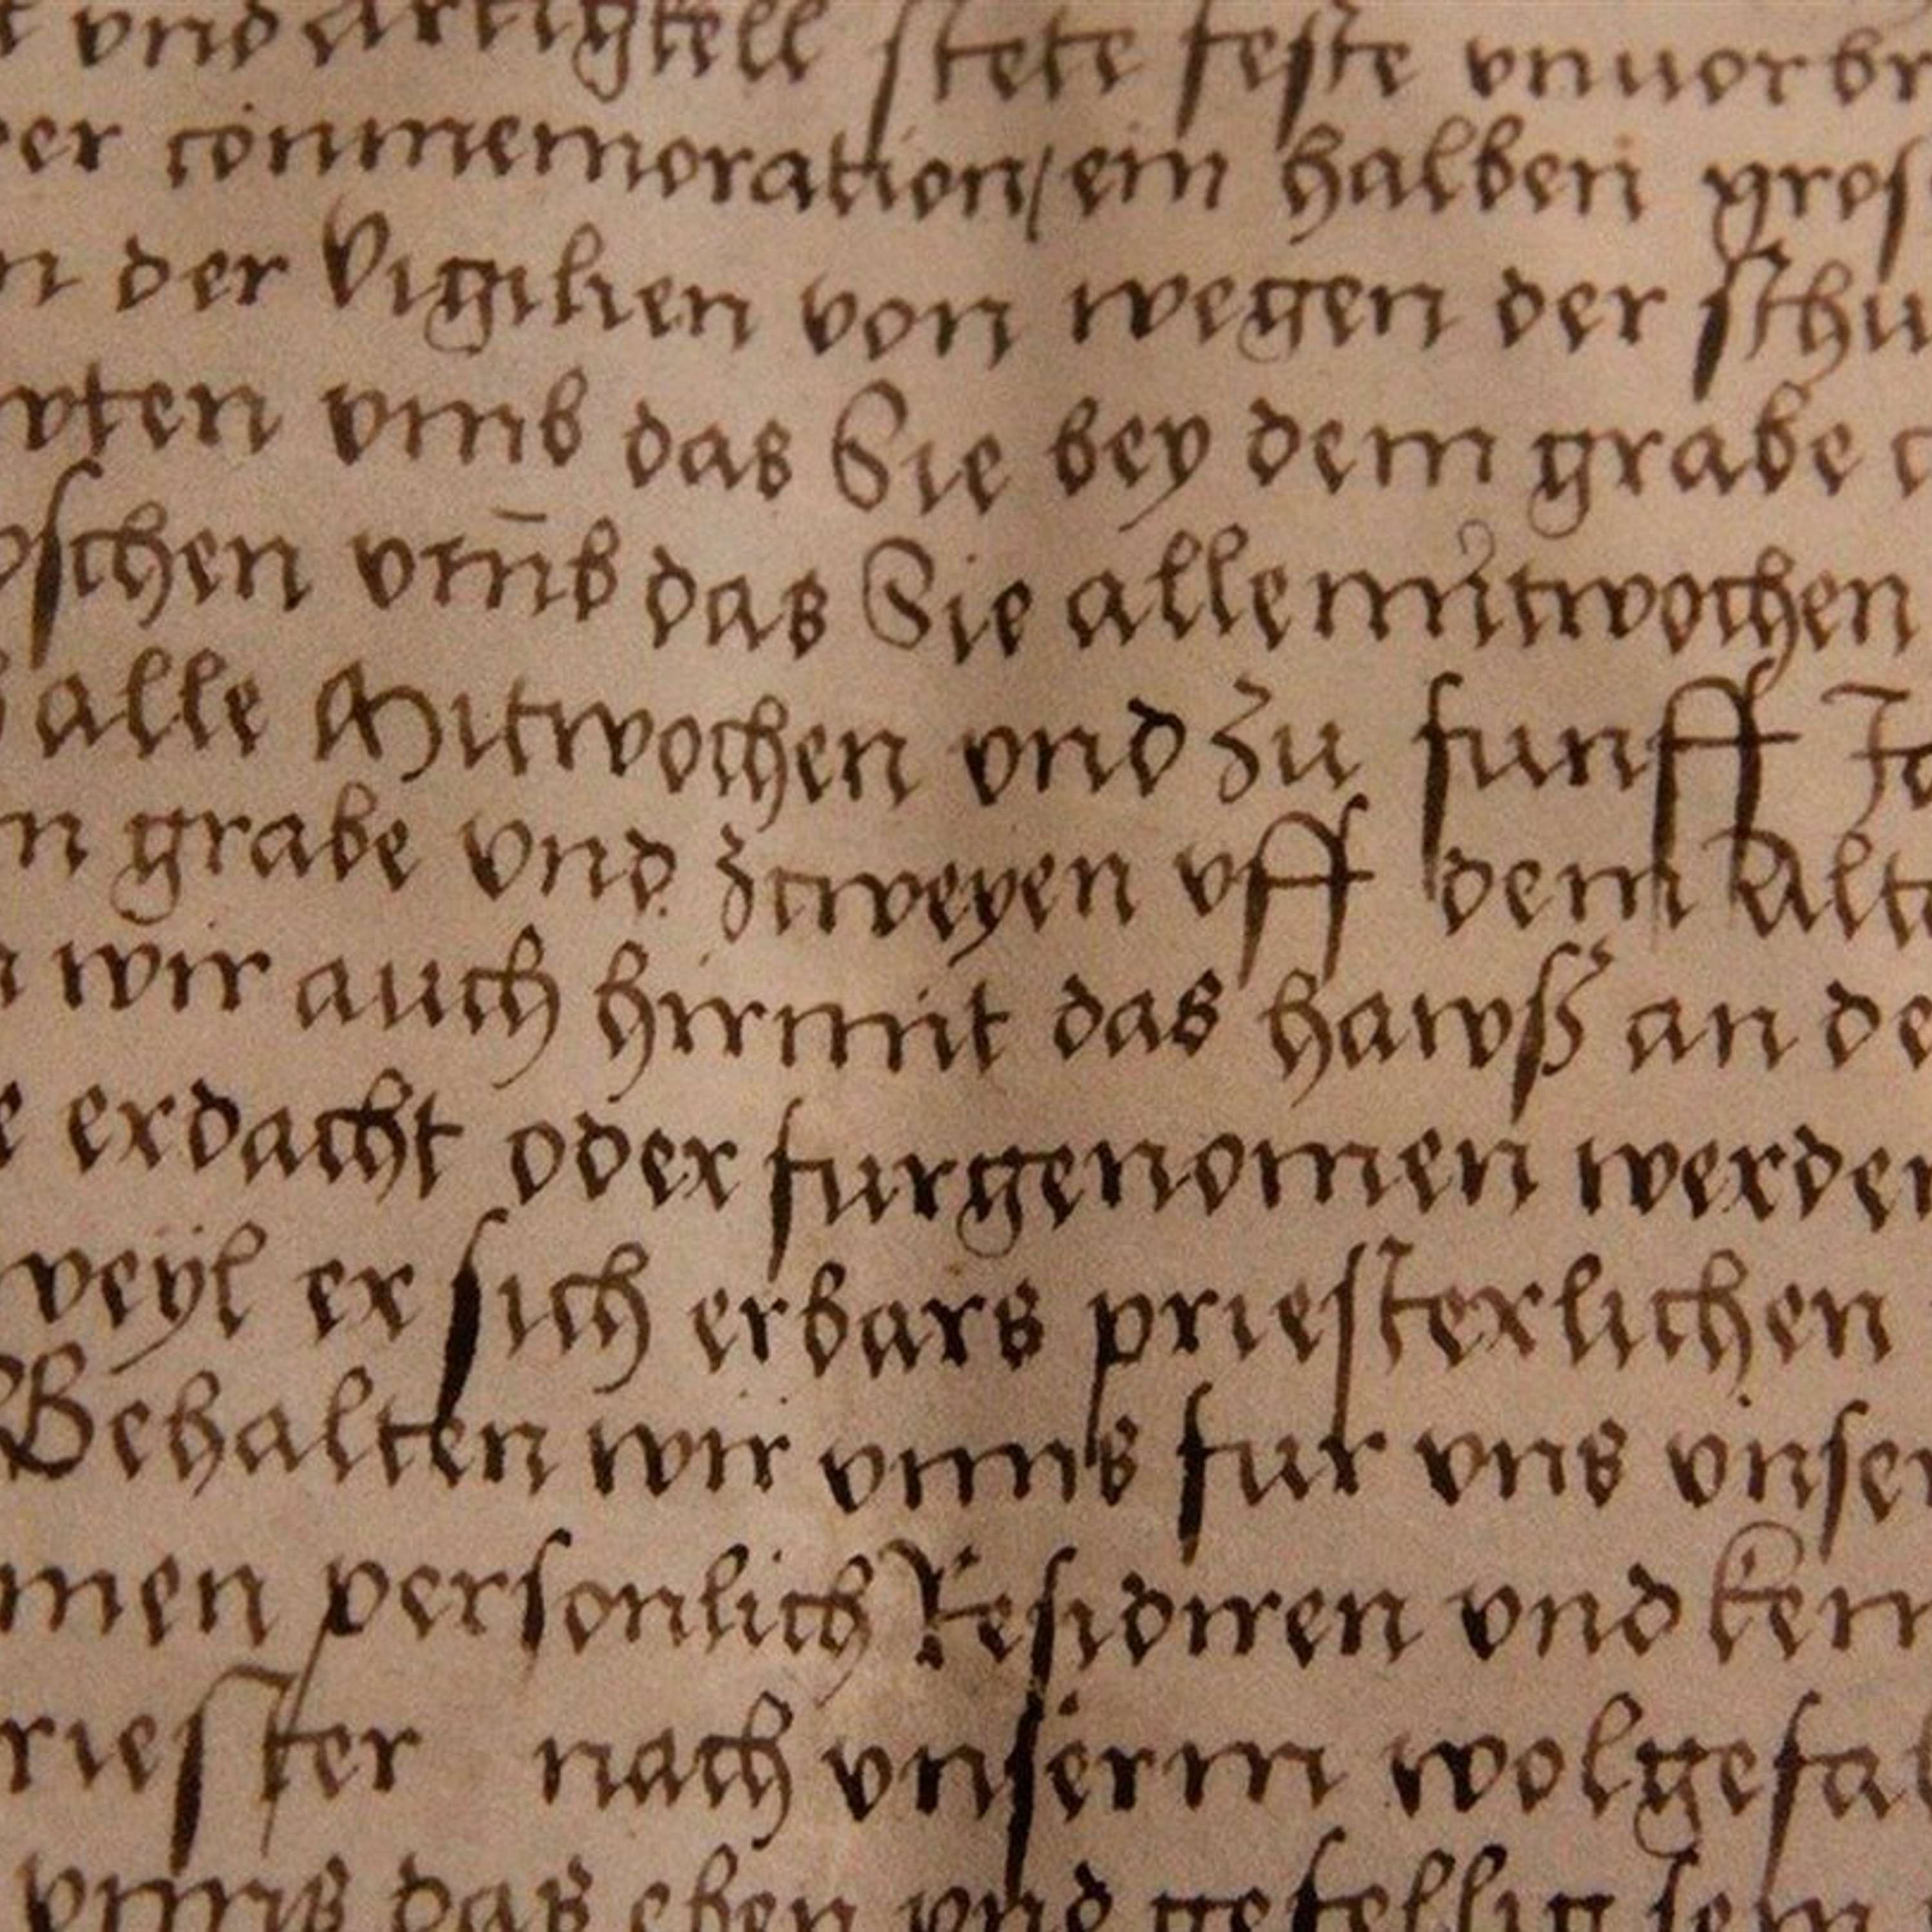 vnd artigkell stete feste vnuorbr
er conmemoration/ ein halben gros
n der Vigilien von wegen der schu
vten vmb das Sie bey dem grabe d
schen vm̄b das Sie alle mitwochen
alle Mitwochen vnd zu funff Jo
n grabe vnd zcweyen vff dem Alt
wir auch hirmit das hawß an de
e erdacht oder furgenomen werden
weyl er sich erbars priesterlichen
Behalten wir vnns fur vns vnser
men personlich Residiren vnd kein
riester nach vnserm wolgefal
vnns das eben vnd gefellig sein